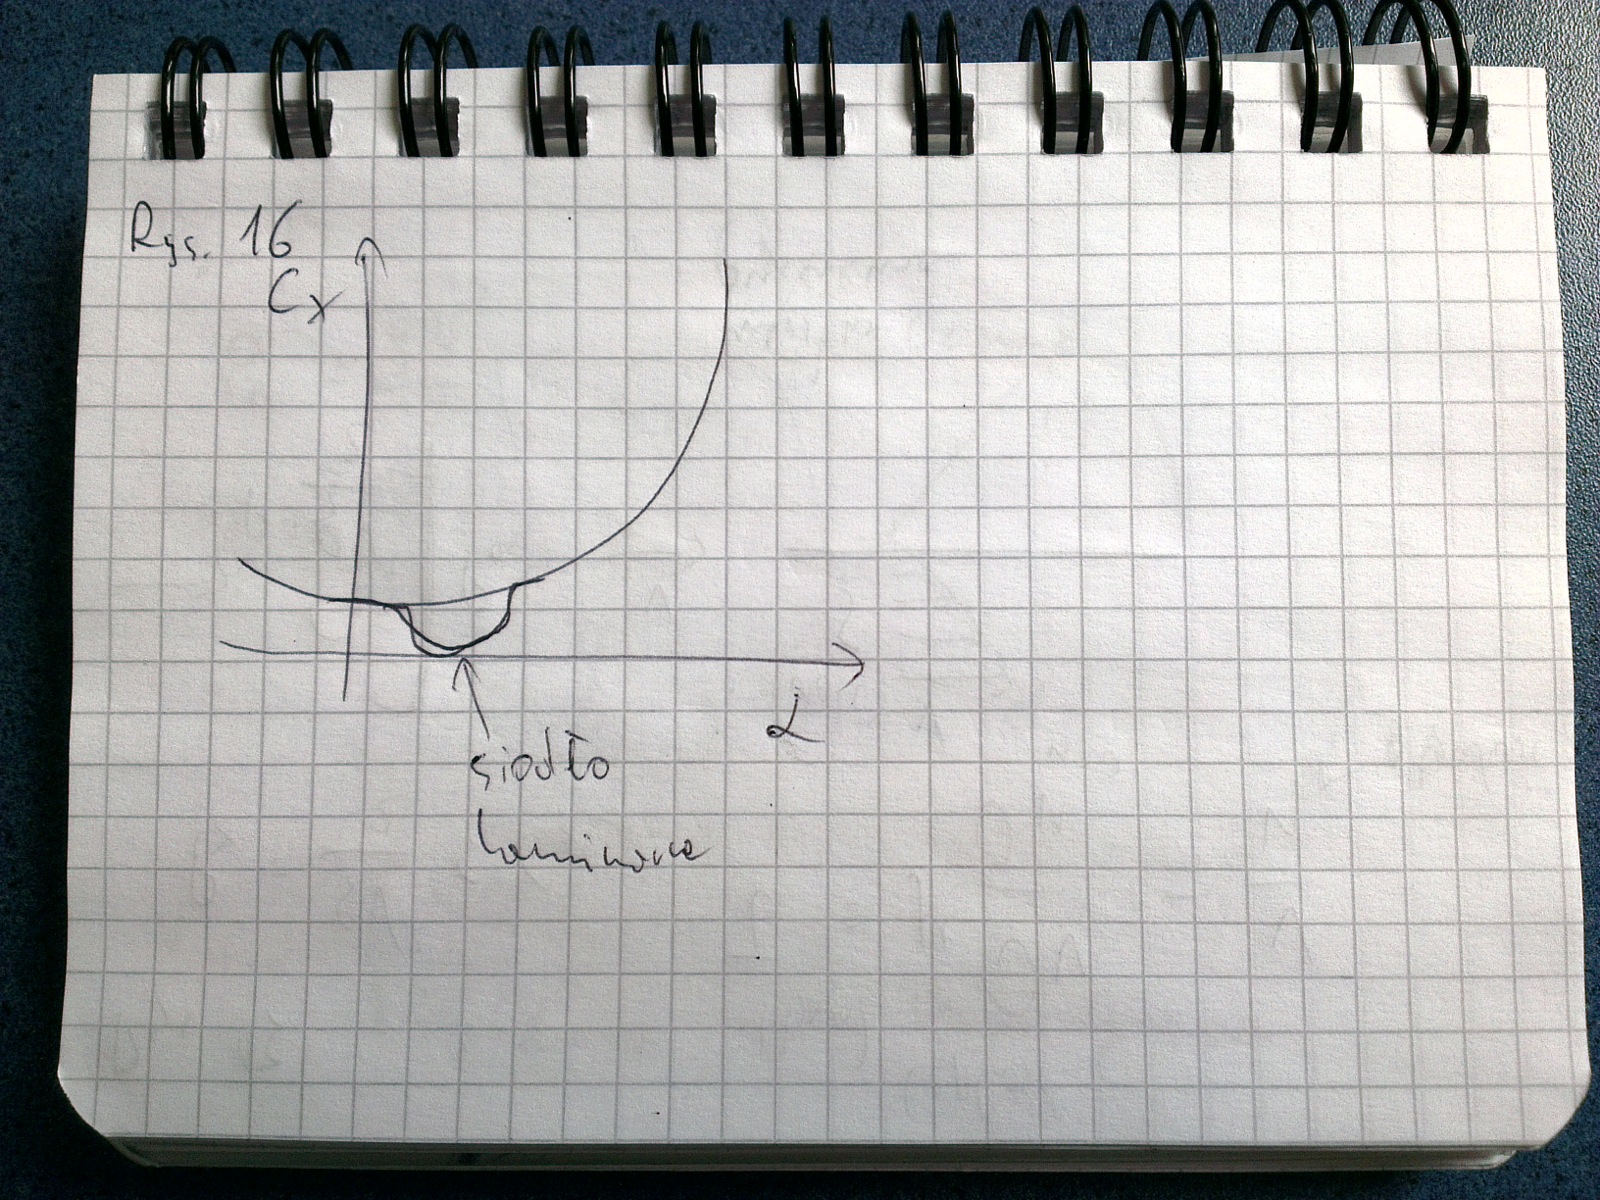 Rys. 16
Cx
α
siodło
laminarne